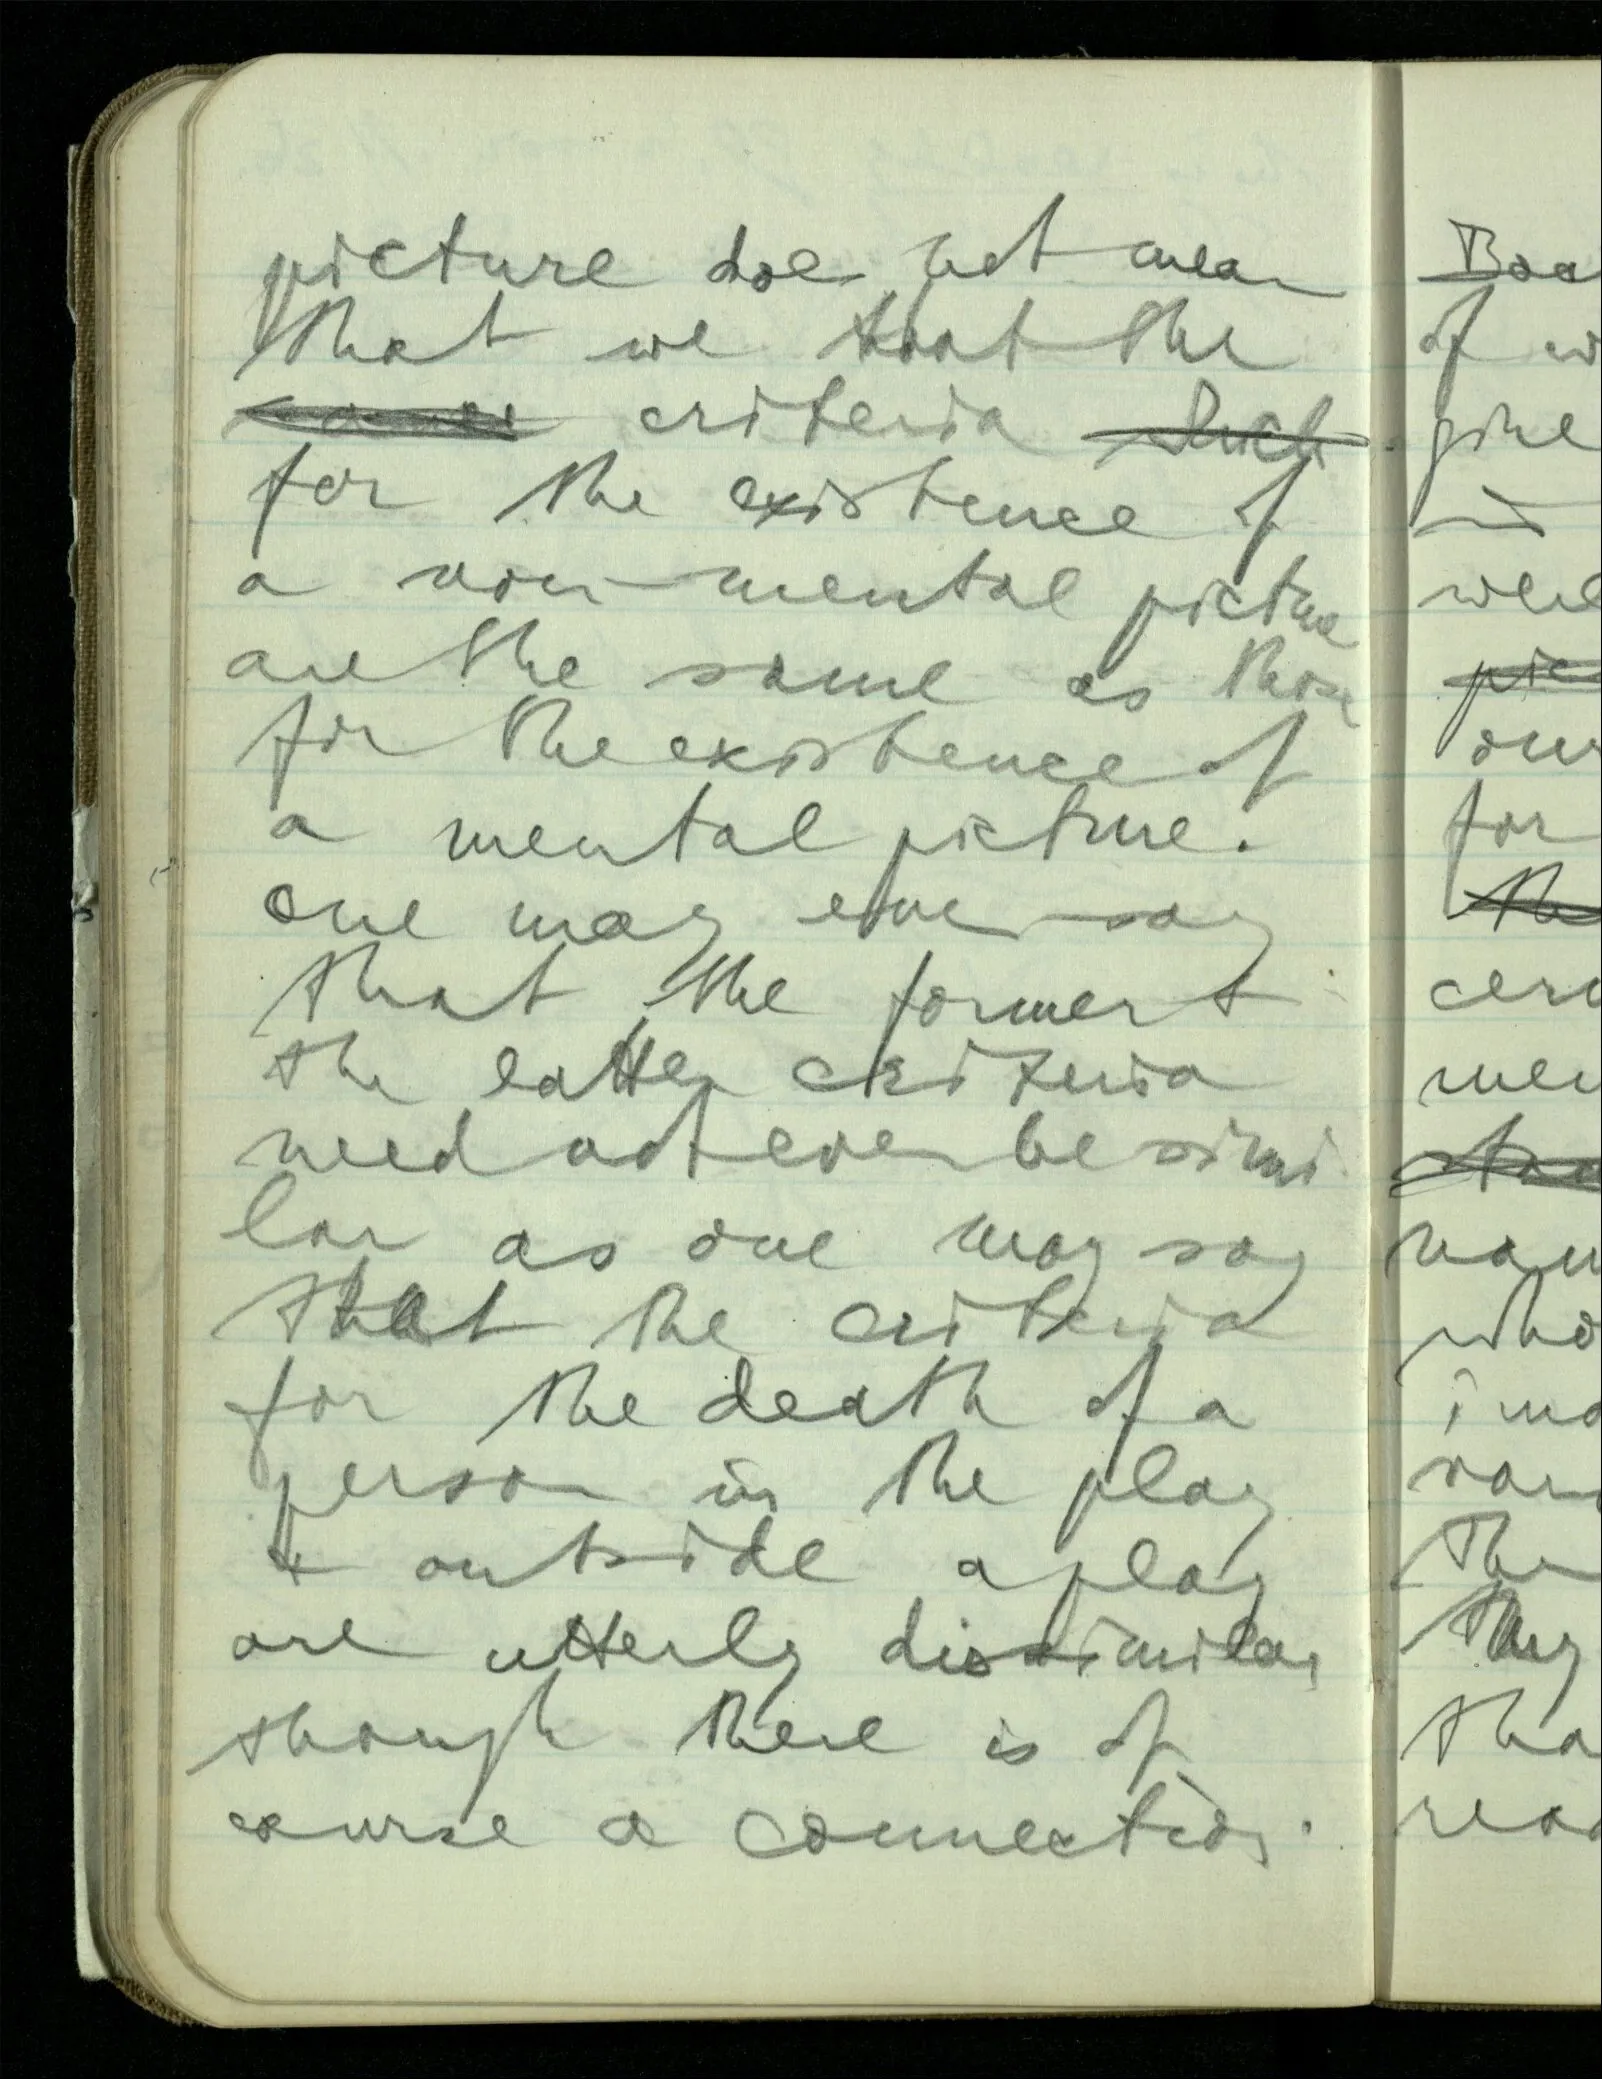 picture does not mean
that we that the
criteria
for the existence of
a non-mental picture
are the same as those
for the existence of
a mental picture.
one may even say
that the former &
the latter criteria
need not even be simi
lar as one may say
that the criteria
for the death of a
person in the play
& outside a play
are utterly dissimilar
though there is of
course a connection.
of
for